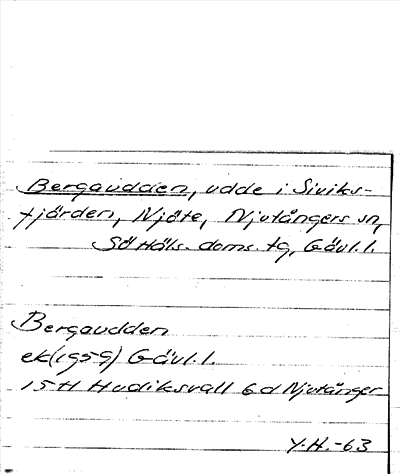 Bergaudden, udde i Siviks-
fjärden, Njöte, Njutångers sn,
Sö Häls. doms. tg, Gävl.l.
Bergaudden
ek(1959) Gävl.l.
15H Hudiksvall 6d Njutånger
Y.H.-63